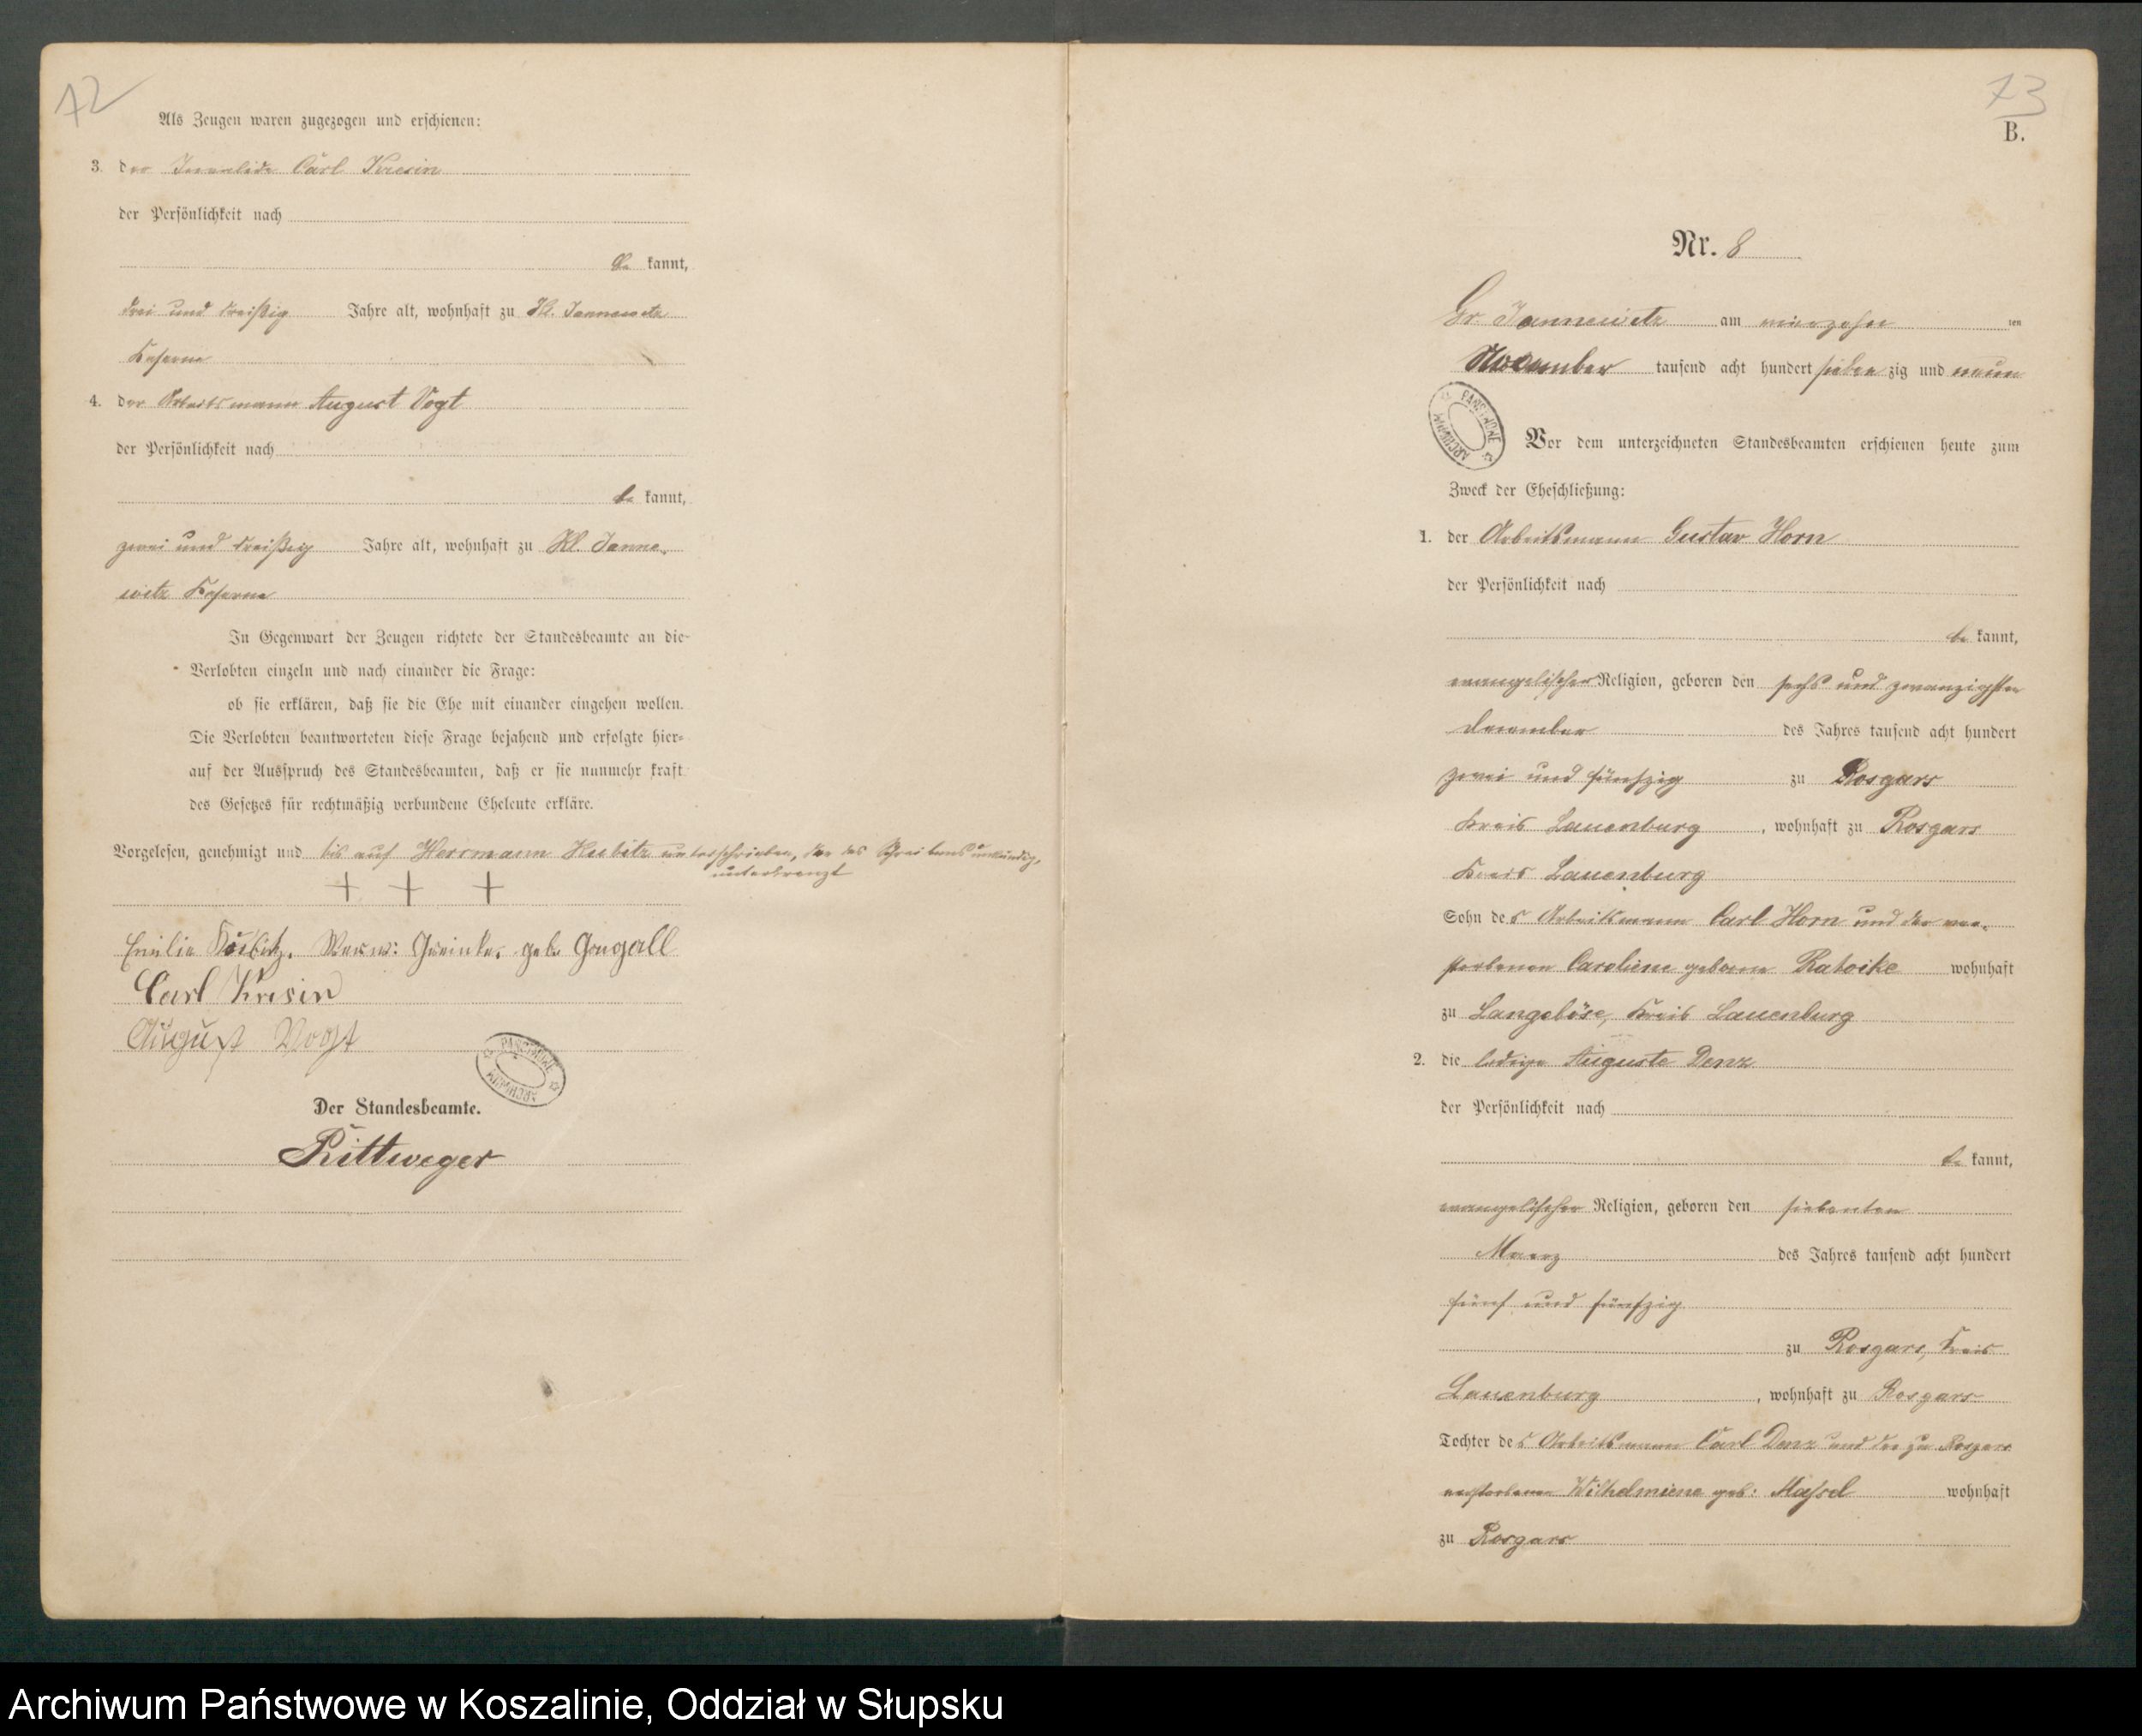 72
Als Zeugen waren zugezogen und erschienen:
3. der Invalide Carl Kresin
der Persönlichkeit nach
be kannt,
drei und dreißig Jahre alt, wohnhaft zu Kl. Jannewitz
Kaserne
4. der Arbeitsmann August Vogt
der Persönlichkeit nach
be kannt,
zwei und dreißig Jahre alt, wohnhaft zu Kl. Janne-
witz Kaserne
In Gegenwart der Zeugen richtete der Standesbeamte an die
Verlobten einzeln und nach einander die Frage:
ob sie erklären, daß sie die Ehe mit einander eingehen wollen.
Die Verlobten beantworteten diese Frage bejahend und erfolgte hier-
auf der Ausspruch des Standesbeamten, daß er sie nunmehr kraft
des Gesetzes für rechtmäßig verbundene Eheleute erkläre.
Vorgelesen, genehmigt und bis auf Herrmann Kubitz unterschrieben, der des Schreibens unkundig,
unterkreuzt
+ + +
Emilie geb.
Carl Kresin
August Vogt
PAŃSTWOWE ARCHIWUM
Der Standesbeamte.
Rittweger
73
B.
Nr. 8
Gr. Jannewitz am vierzehn ten
November tausend acht hundert sieben zig und neun
PAŃSTWOWE ARCHIWUM
Vor dem unterzeichneten Standesbeamten erschienen heute zum
Zweck der Eheschließung:
1. der Arbeitsmann Gustav Horn
der Persönlichkeit nach
be kannt,
evangelischer Religion, geboren den sechs und zwanzigsten
December des Jahres tausend acht hundert
zwei und fünfzig zu Rosgars
Kreis Lauenburg, wohnhaft zu Rosgars
Kreis Lauenburg
Sohn des Arbeitsmann Carl Horn und der ver-
storbenen Caroliene geborne Ratoike wohnhaft
zu Langeböse, Kreis Lauenburg
2. die ledige Auguste Denz
der Persönlichkeit nach
be kannt,
evangelischer Religion, geboren den siebenten
Maerz des Jahres tausend acht hundert
fünf und fünfzig
zu Rosgars, Kreis
Lauenburg, wohnhaft zu Rosgars
Tochter des Arbeitsmann Carl Denz und der zu Rosgars
verstorbenen Wilhelmiene geb: Massel wohnhaft
zu Rosgars
Archiwum Państwowe w Koszalinie, Oddział w Słupsku